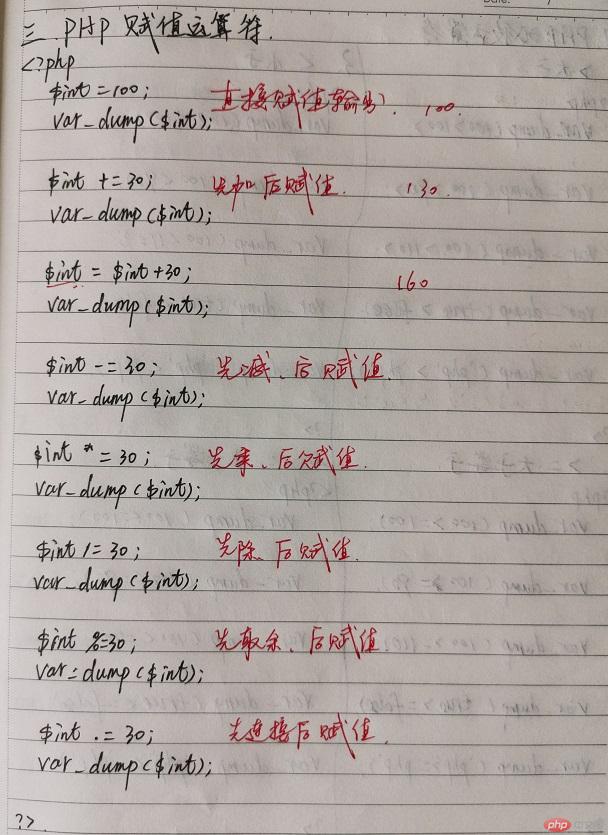 三. PHP 赋值运算符.
<?php
$int = 100; 直接赋值(输出). 100.
var_dump($int);
$int += 30; 先加后赋值. 130.
var_dump($int);
$int = $int+30; 160
var_dump($int);
$int -= 30; 先减、后赋值.
var_dump($int);
$int *= 30; 先乘、后赋值.
var_dump($int);
$int /= 30; 先除、后赋值.
var_dump($int);
$int %=30; 先取余、后赋值
var_dump($int);
$int .= 30; 先连接后赋值.
var_dump($int);
?>
php